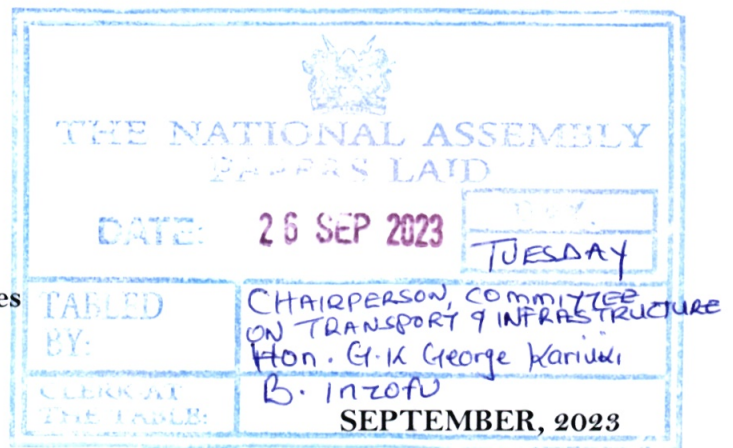 THE NATIONAL ASSEMBLY
PAPERS LAID
DATE: 26 SEP 2023
DAY.
TUESDAY
es
TABLED BY:
CHAIRPERSON, COMMITTEE
ON TRANSPORT & INFRASTRUCTURE
Hon. G.K George Kariuki
CLERK AT THE TABLE:
B. Inzofu
SEPTEMBER, 2023